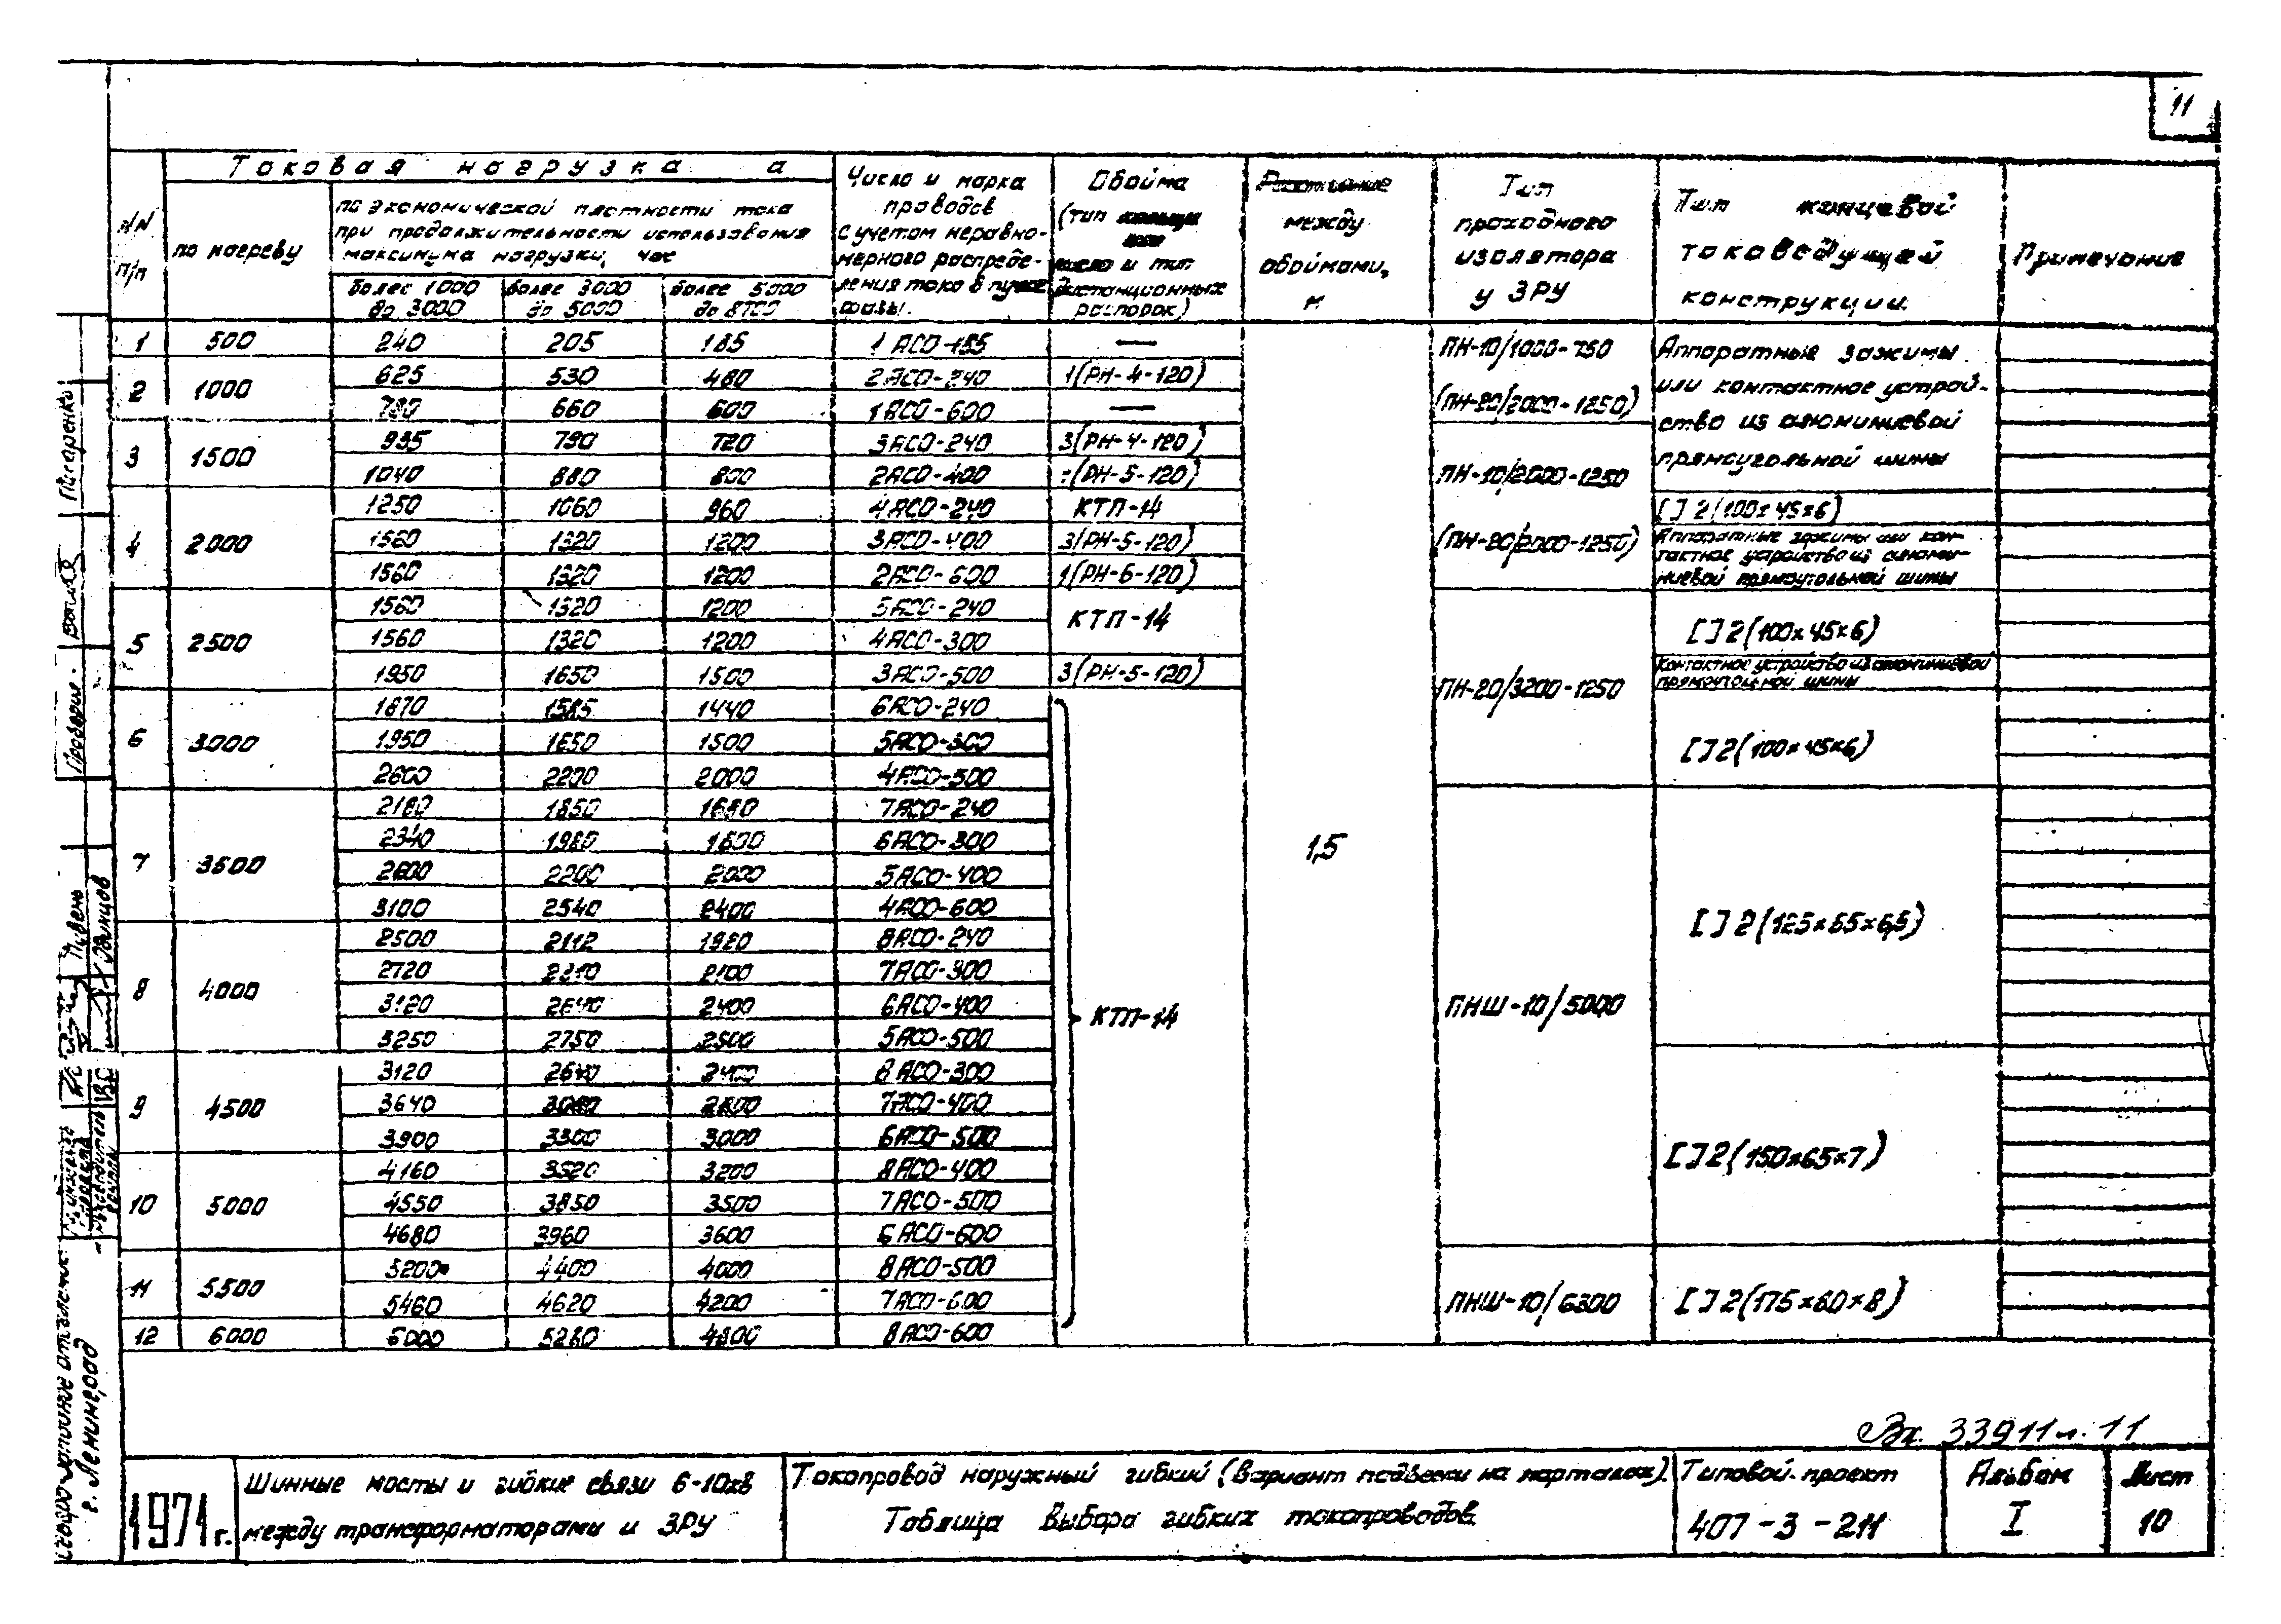 11
Токовая нагрузка а
N/N п/п
по нагреву
по экономической плотности тока
при продолжительности использования
максимума нагрузки, час
более 1000 до 3000
более 3000 до 5000
более 5000 до 8700
Число и марка
проводов
с учетом неравно-
мерного распреде-
ления тока в пучке
фазы.
Обойма
(тип кольца
или
число и тип
дистанционных
распорок)
Расстояние
между
обоймами,
м
Тип
проходного
изолятора
у ЗРУ
Тип концевой
токоведущей
конструкции
Примечание
1 500 240 205 185 1 АСО-185 — ПН-10/1000-750 Аппаратные зажимы
2 1000 625 530 480 2АСО-240 1(РН-4-120) или контактное устрой-
780 660 600 1АСО-600 — (ПН-20/2000-1250) ство из алюминиевой
3 1500 935 790 720 3АСО-240 3(РН-4-120) прямоугольной шины
1040 880 800 2АСО-400 (РН-5-120) ПН-10/2000-1250
4 2000 1250 1060 960 4АСО-240 КТП-14 [ ] 2(100×45×6)
1560 1320 1200 3АСО-400 3(РН-5-120) (ПН-20/2000-1250) Аппаратные зажимы или кон-
тактное устройство из алюми-
1560 1320 1200 2АСО-600 1(РН-6-120) ниевой прямоугольной шины
5 2500 1560 1320 1200 5АСО-240 КТП-14
1560 1320 1200 4АСО-300 [ ] 2(100×45×6)
1950 1650 1500 3АСО-500 3(РН-5-120) ПН-20/3200-1250 Контактное устройство из алюминиевой
прямоугольной шины
6 3000 1870 1585 1440 6АСО-240
1950 1650 1500 5АСО-300 [ ] 2(100×45×6)
2600 2200 2000 4АСО-500
7 3500 2180 1850 1680 7АСО-240
2340 1980 1800 6АСО-300 1,5
2600 2200 2000 5АСО-400
3100 2540 2400 4АСО-600 [ ] 2(125×55×6,5)
8 4000 2500 2112 1920 8АСО-240
2720 2310 2100 7АСО-300
3120 2640 2400 6АСО-400 КТП-14 ПНШ-10/5000
3250 2750 2500 5АСО-500
9 4500 3120 2640 2400 8АСО-300
3640 3080 2800 7АСО-400
3900 3300 3000 6АСО-500 [ ] 2(150×65×7)
10 5000 4160 3520 3200 8АСО-400
4550 3850 3500 7АСО-500
4680 3960 3600 6АСО-600
11 5500 5200 4400 4000 8АСО-500
5460 4620 4200 7АСО-600 ПНШ-10/6300 [ ] 2(175×80×8)
12 6000 6000 5280 4800 8АСО-600
Вх. 33911л. 11
1971 г.
Шинные мосты и гибкие связи 6-10кв
между трансформаторами и ЗРУ
Токопровод наружный гибкий (Вариант подвески на порталах).
Таблица выбора гибких токопроводов.
Типовой проект
407-3-211
Альбом
I
Лист
10
Проверил
г. Ленинград